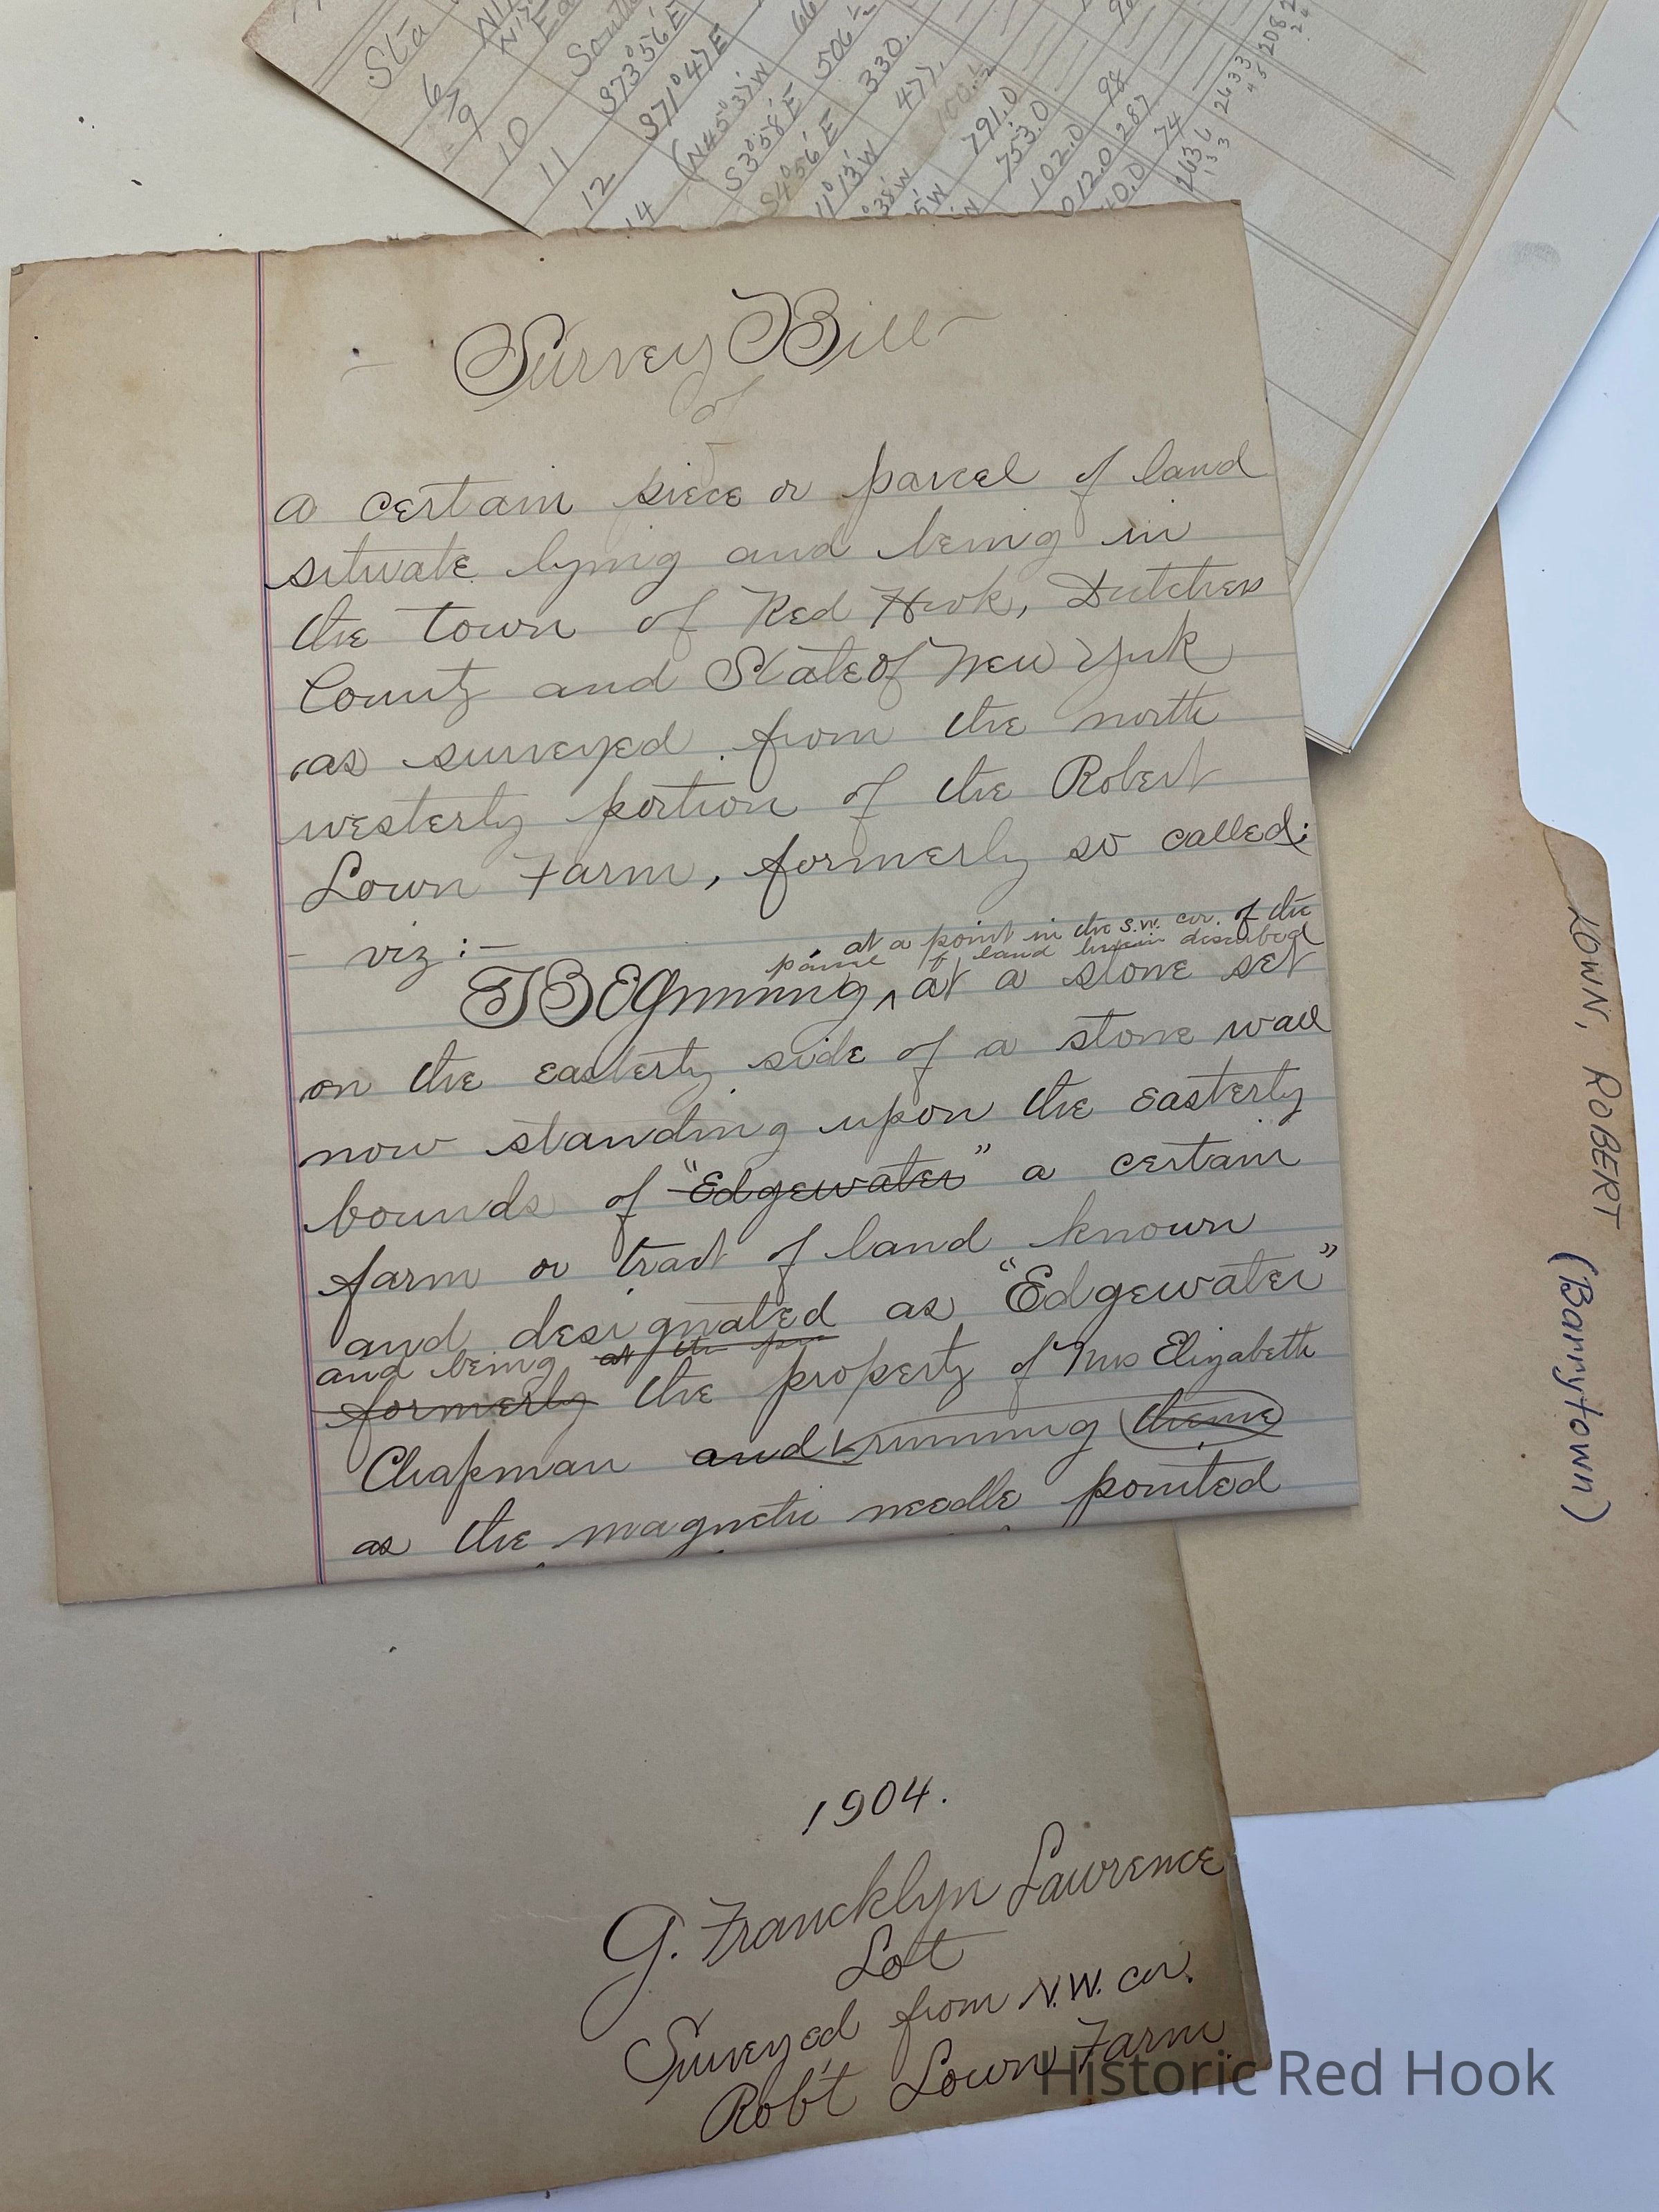 Sta
6
9
10
11
12
14
South
S73°56'E
S71°47'E
(N45°37'W
S3°58'E
S4°56'E
506½
330.
477.
100.½
791.0
753.0
102.0
98
287
74
- Survey Bill -
of
a certain piece or parcel of land
situate lying and being in
the town of Red Hook, Dutchess
County and State of New York
as surveyed from the north
westerly portion of the Robert
Lown Farm, formerly so called;
- viz :-
at a point in the S.W. cor. of the
parcel of land herein described
Beginning ^ at a stone set
on the easterly side of a stone wall
now standing upon the easterly
bounds of "Edgewater" a certain
farm or tract of land known
and designated as "Edgewater"
and being at the
formerly the property of Mrs Elizabeth
Chapman and running thence
as the magnetic needle pointed
LOWN, ROBERT (Barrytown)
1904.
G. Francklyn Lawrence
Lot
Surveyed from N.W. cor.
Rob't Lown Farm
Historic Red Hook